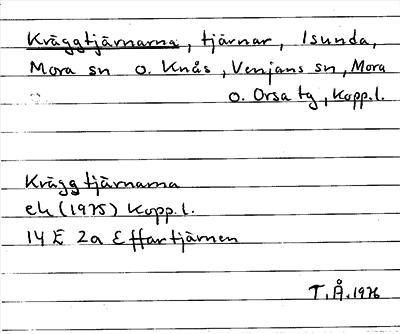 Kräggtjärnarna, tjärnar, Isunda,
Mora sn o. Knås, Venjans sn, Mora
o. Orsa tg, Kopp.l.
Kräggtjärnarna
ek (1975) Kopp.l.
14 E 2a Effartjärnen
T.Å. 1976